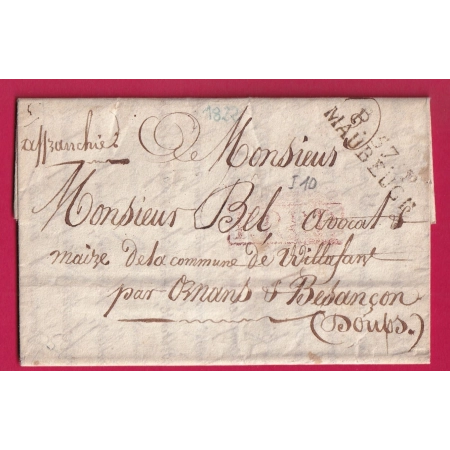 1822
affranchie
Monsieur
P.57.P
MAUBEUGE
J 10
Monsieur Bel avocat &
maire de la commune de Willafant
par Ornans & Besançon
(Doubs.)